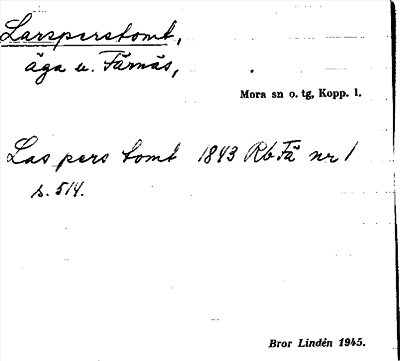 Larsperstomt,
äga u. Färnäs,
Mora sn o. tg, Kopp. l.
Las pers tomt 1843 Rb Fä nr 1
s. 514.
Bror Lindén 1945.